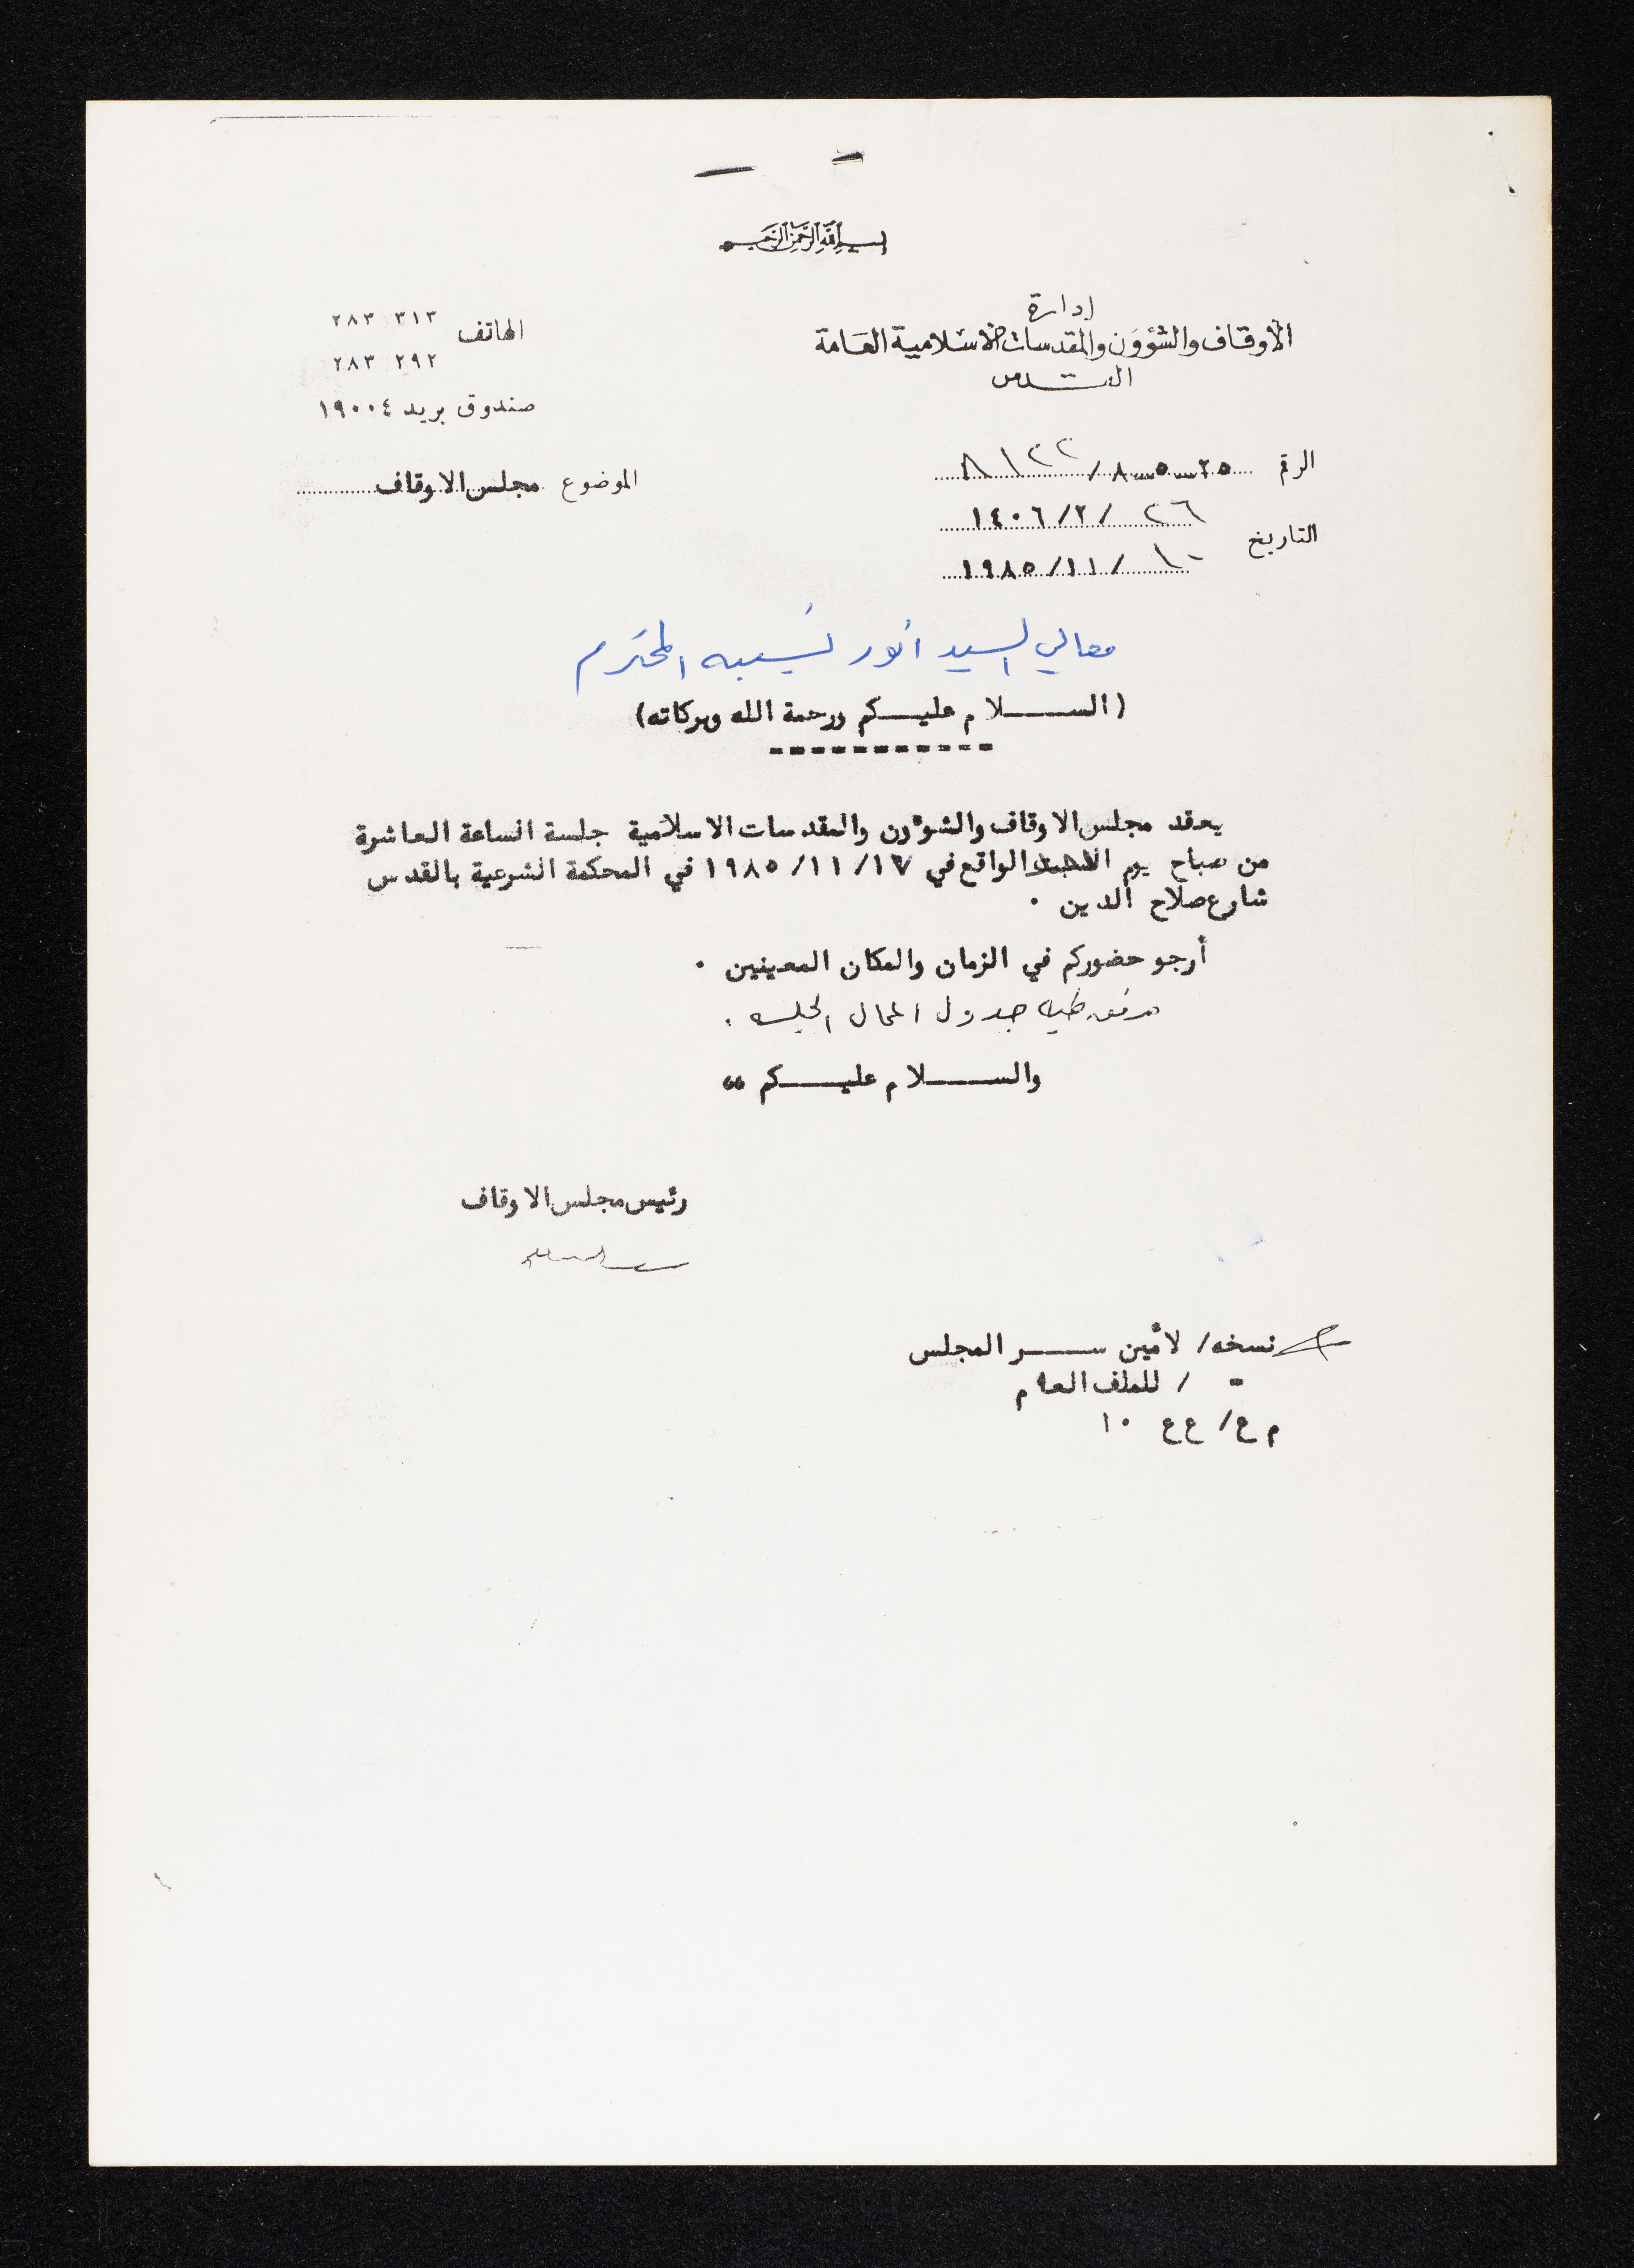 بسم الله الرحمن الرحيم
إدارة
الأوقاف والشؤون والمقدسات الاسلامية العامة
القدس
الهاتف ٣١٣ ٢٨٣
٢٩٢ ٢٨٣
صندوق بريد ١٩٠٠٤
الرقم ٢٥-٥-٨/ ٨١٢٢
الموضوع مجلس الاوقاف
التاريخ ٢٦ /٢/ ١٤٠٦
١٠ /١١/ ١٩٨٥
معالي السيد انور نسيبه المحترم
(الســـلام عليــكم ورحمة الله وبركاته)
-----------
يعقد مجلس الاوقاف والشوءون والمقدسات الاسلامية جلسة الساعة العاشرة
من صباح يوم الاحد الواقع في ١٧/١١/١٩٨٥ في المحكمة الشرعية بالقدس
شارع صلاح الدين ٠
أرجو حضوركم في الزمان والمكان المعينين ٠
مرفق طيه جدول اعمال الجلسه .
والســـلام عليــكم ،،
رئيس مجلس الاوقاف
نسخه/ لأمين ســـر المجلس
- / للملف العام
م ع/ ع ع ١٠